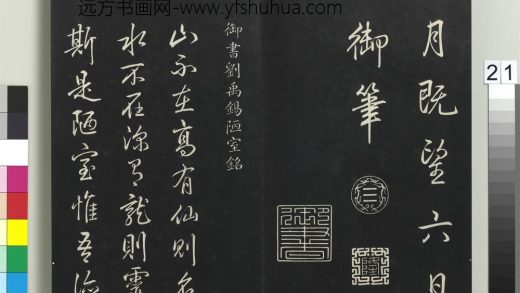 远方书画网-www.yfshuhua.com
月既望六月
御筆
御書劉禹錫陋室銘
山不在高有仙則名
水不在深有龍則靈
斯是陋室惟吾
21